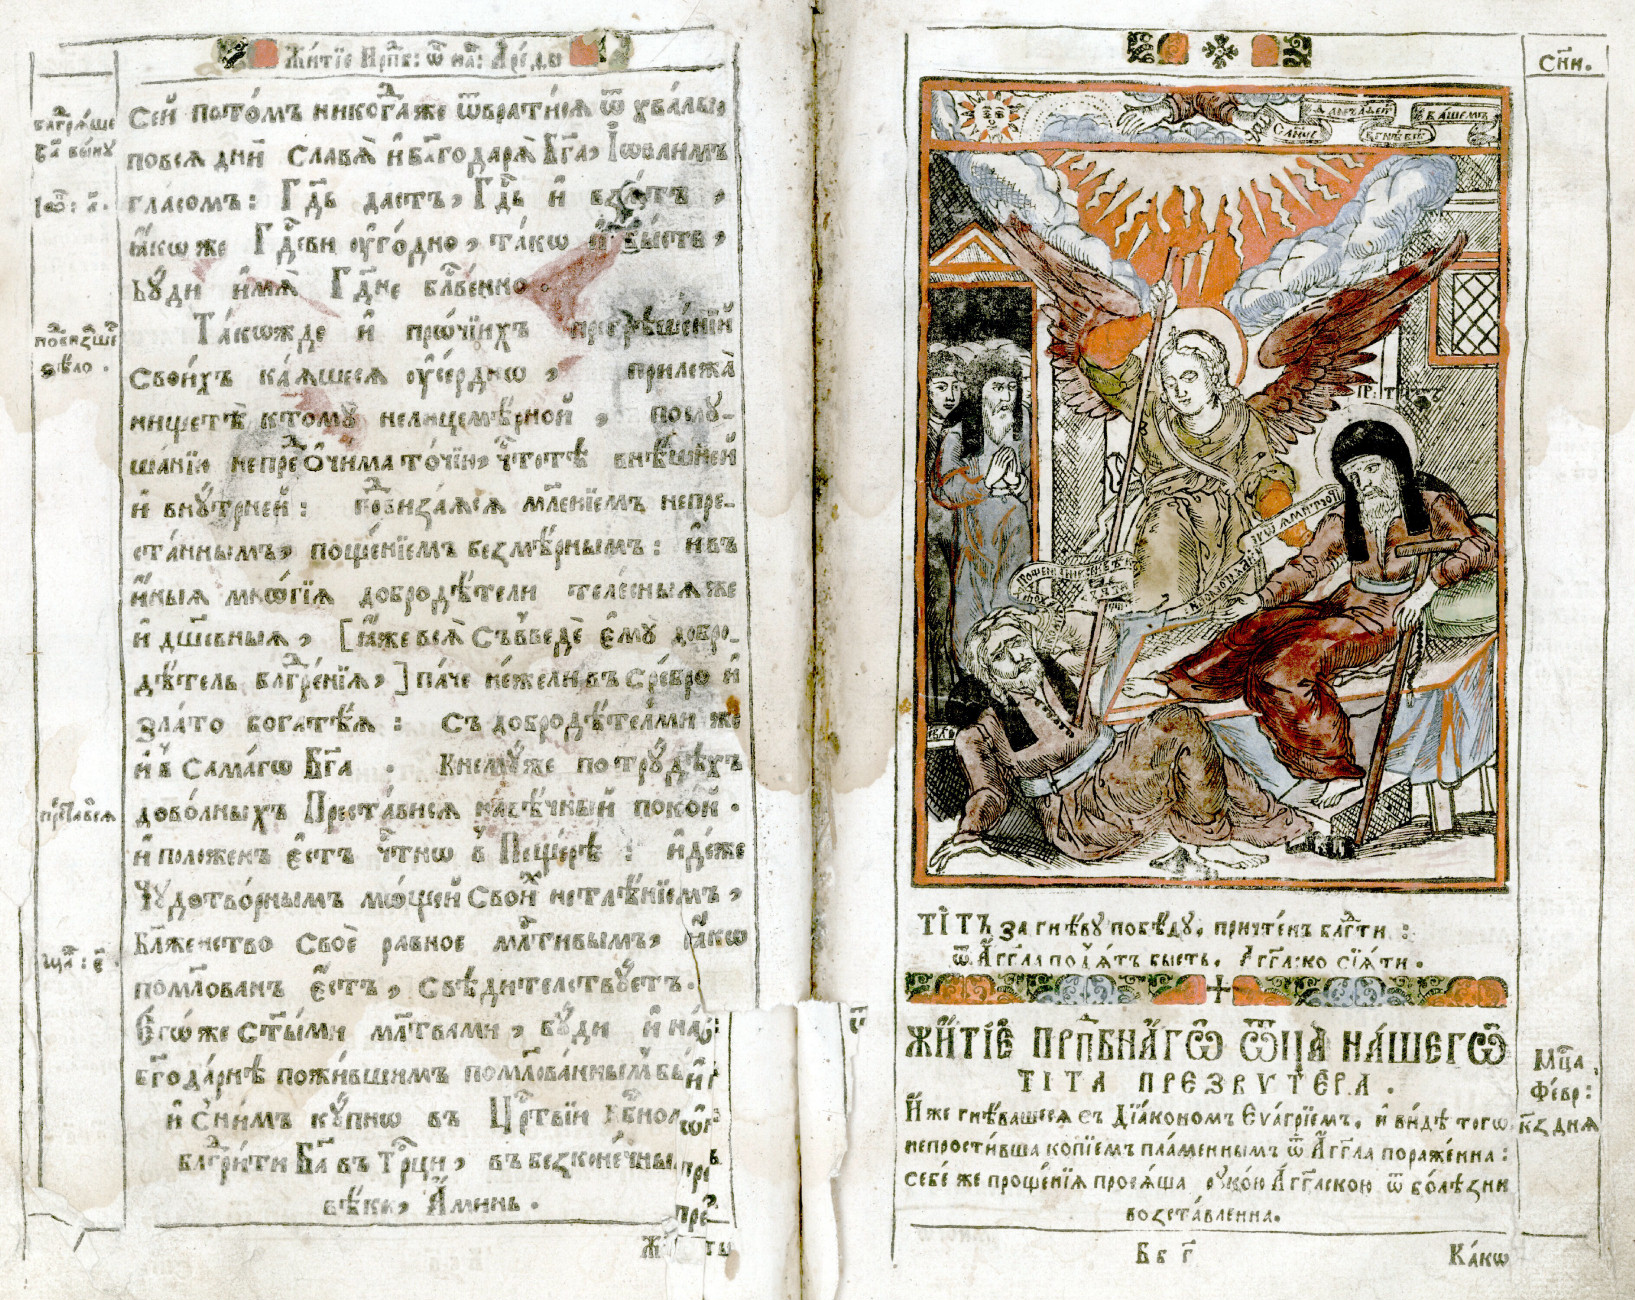 Жи́тїе Прпⷣб: ѿ на́: Аре́ѳы
Сей пото́мъ никогⷣаже ѿврати́сѧ ѿ хвалы̀,
повсѧ дни̑ Славѧ̀ и҆ благодарѧ̀ Бг҃а, І҆ѡвлимъ
гла́сомъ: Гдⷭ҇ь дастъ, Гдⷭ҇ь и҆ взѧ́тъ,
ꙗ҆́кѡже Гдⷭ҇еви оу҆го́дно, та́кѡ и҆ бы́сть,
бꙋ́ди и҆́мѧ Гдⷭ҇не блгⷭ҇ве́нно.
Та́кѡжде и҆ прѡ́чїихъ прегрѣше́нїй
свои́хъ ка́ѧшесѧ оу҆се́рднѡ, прилежа̀
нищетѣ̀ ктомꙋ̀ нелицемѣ́рной, послꙋ-
ша́нїю непрео́чима то́чїю, чⷭ҇тотѣ̀ внѣ́шней
и҆ внꙋ́трней: подвиза́ѧсѧ мл҃е́нїемъ непре-
ста́ннымъ, поще́нїемъ безмѣ́рнымъ: и҆ въ
и҆́ныѧ мнѡ́гїѧ добродѣ́тели тѣле́сныѧже
и҆ дш҃е́вныѧ, [ꙗ҆́же всѧ̀ Съвведѐ є҆мꙋ̀ добро-
дѣ́тель блгⷣре́нїѧ,] па́че не́жели въ Сребро̀ и҆
зла́то богатѣ́ѧ: съ добродѣ́телми же
и҆ в̾ Самагѡ Бг҃а. Книемꙋ́же по трꙋдѣ́хъ
дово́лныхъ Преста́висѧ навѣ́чный поко́й.
и҆ поло́женъ є҆́стъ чⷭ҇тнѡ в̾ Пеще́рѣ: и҆дѣ́же
Чꙋдотво́рнымъ мо́щей Свои́хъ нетлѣ́нїемъ,
Блаже́нство Своѐ ра́вное млⷭ҇тивымъ, ꙗ҆́кѡ
поми́лованъ є҆́стъ, свѣди́телствꙋетъ.
Є҆гѡ́же ст҃ы́ми мл҃твами, бꙋ́ди и҆ на́
бл҃года́рнѣ пожи́вшимъ поми́лова́ннымъ бы́
и҆ сни́мъ кꙋ́пнѡ въ Црⷭ҇твїи
благⷣри́ти Бг҃а въ Трⷪ҇ци, въ безконе́чны
вѣ́ки, А҆ми́нь.
благⷣрѧ́ше
Бг҃а вы́нꙋ
І҆ѡ́в: а҃.
подвиза́шесѧ
ѕѣло̀.
преста́висѧ
сн҃и.
ПР: ТІТЪ
ТІ́ТЪ за гнѣ́вꙋ побѣ́дꙋ, причте́нъ блгⷣти:
ѿ А҆́гг҃ла по́ѧ́тъ бы́сть, А҆гг҃лско сїѧ́ти.
ЖИ́ТІЄ ПРПⷣБНА́ГѠ ѾЦА̀ НА́ШЕГѠ
ТІ́ТА ПРЕЗВѴ́ТЕРА.
И҆́же гнѣ́вашесѧ съ Дїа́кономъ Еѵа́грїемъ, и҆ ви́дѣ того̀
непрости́вша копїе́мъ пла́меннымъ ѿ А҆́гг҃ла пораже́нна:
себе́ же проще́нїѧ просѧ́ша рꙋко́ю А҆́гг҃лскою ѿ болѣ́зни
возста́вленна.
Мцⷭ҇а
Фе́вр:
к҃з днѧ
Б в г҃
Ка́кѡ